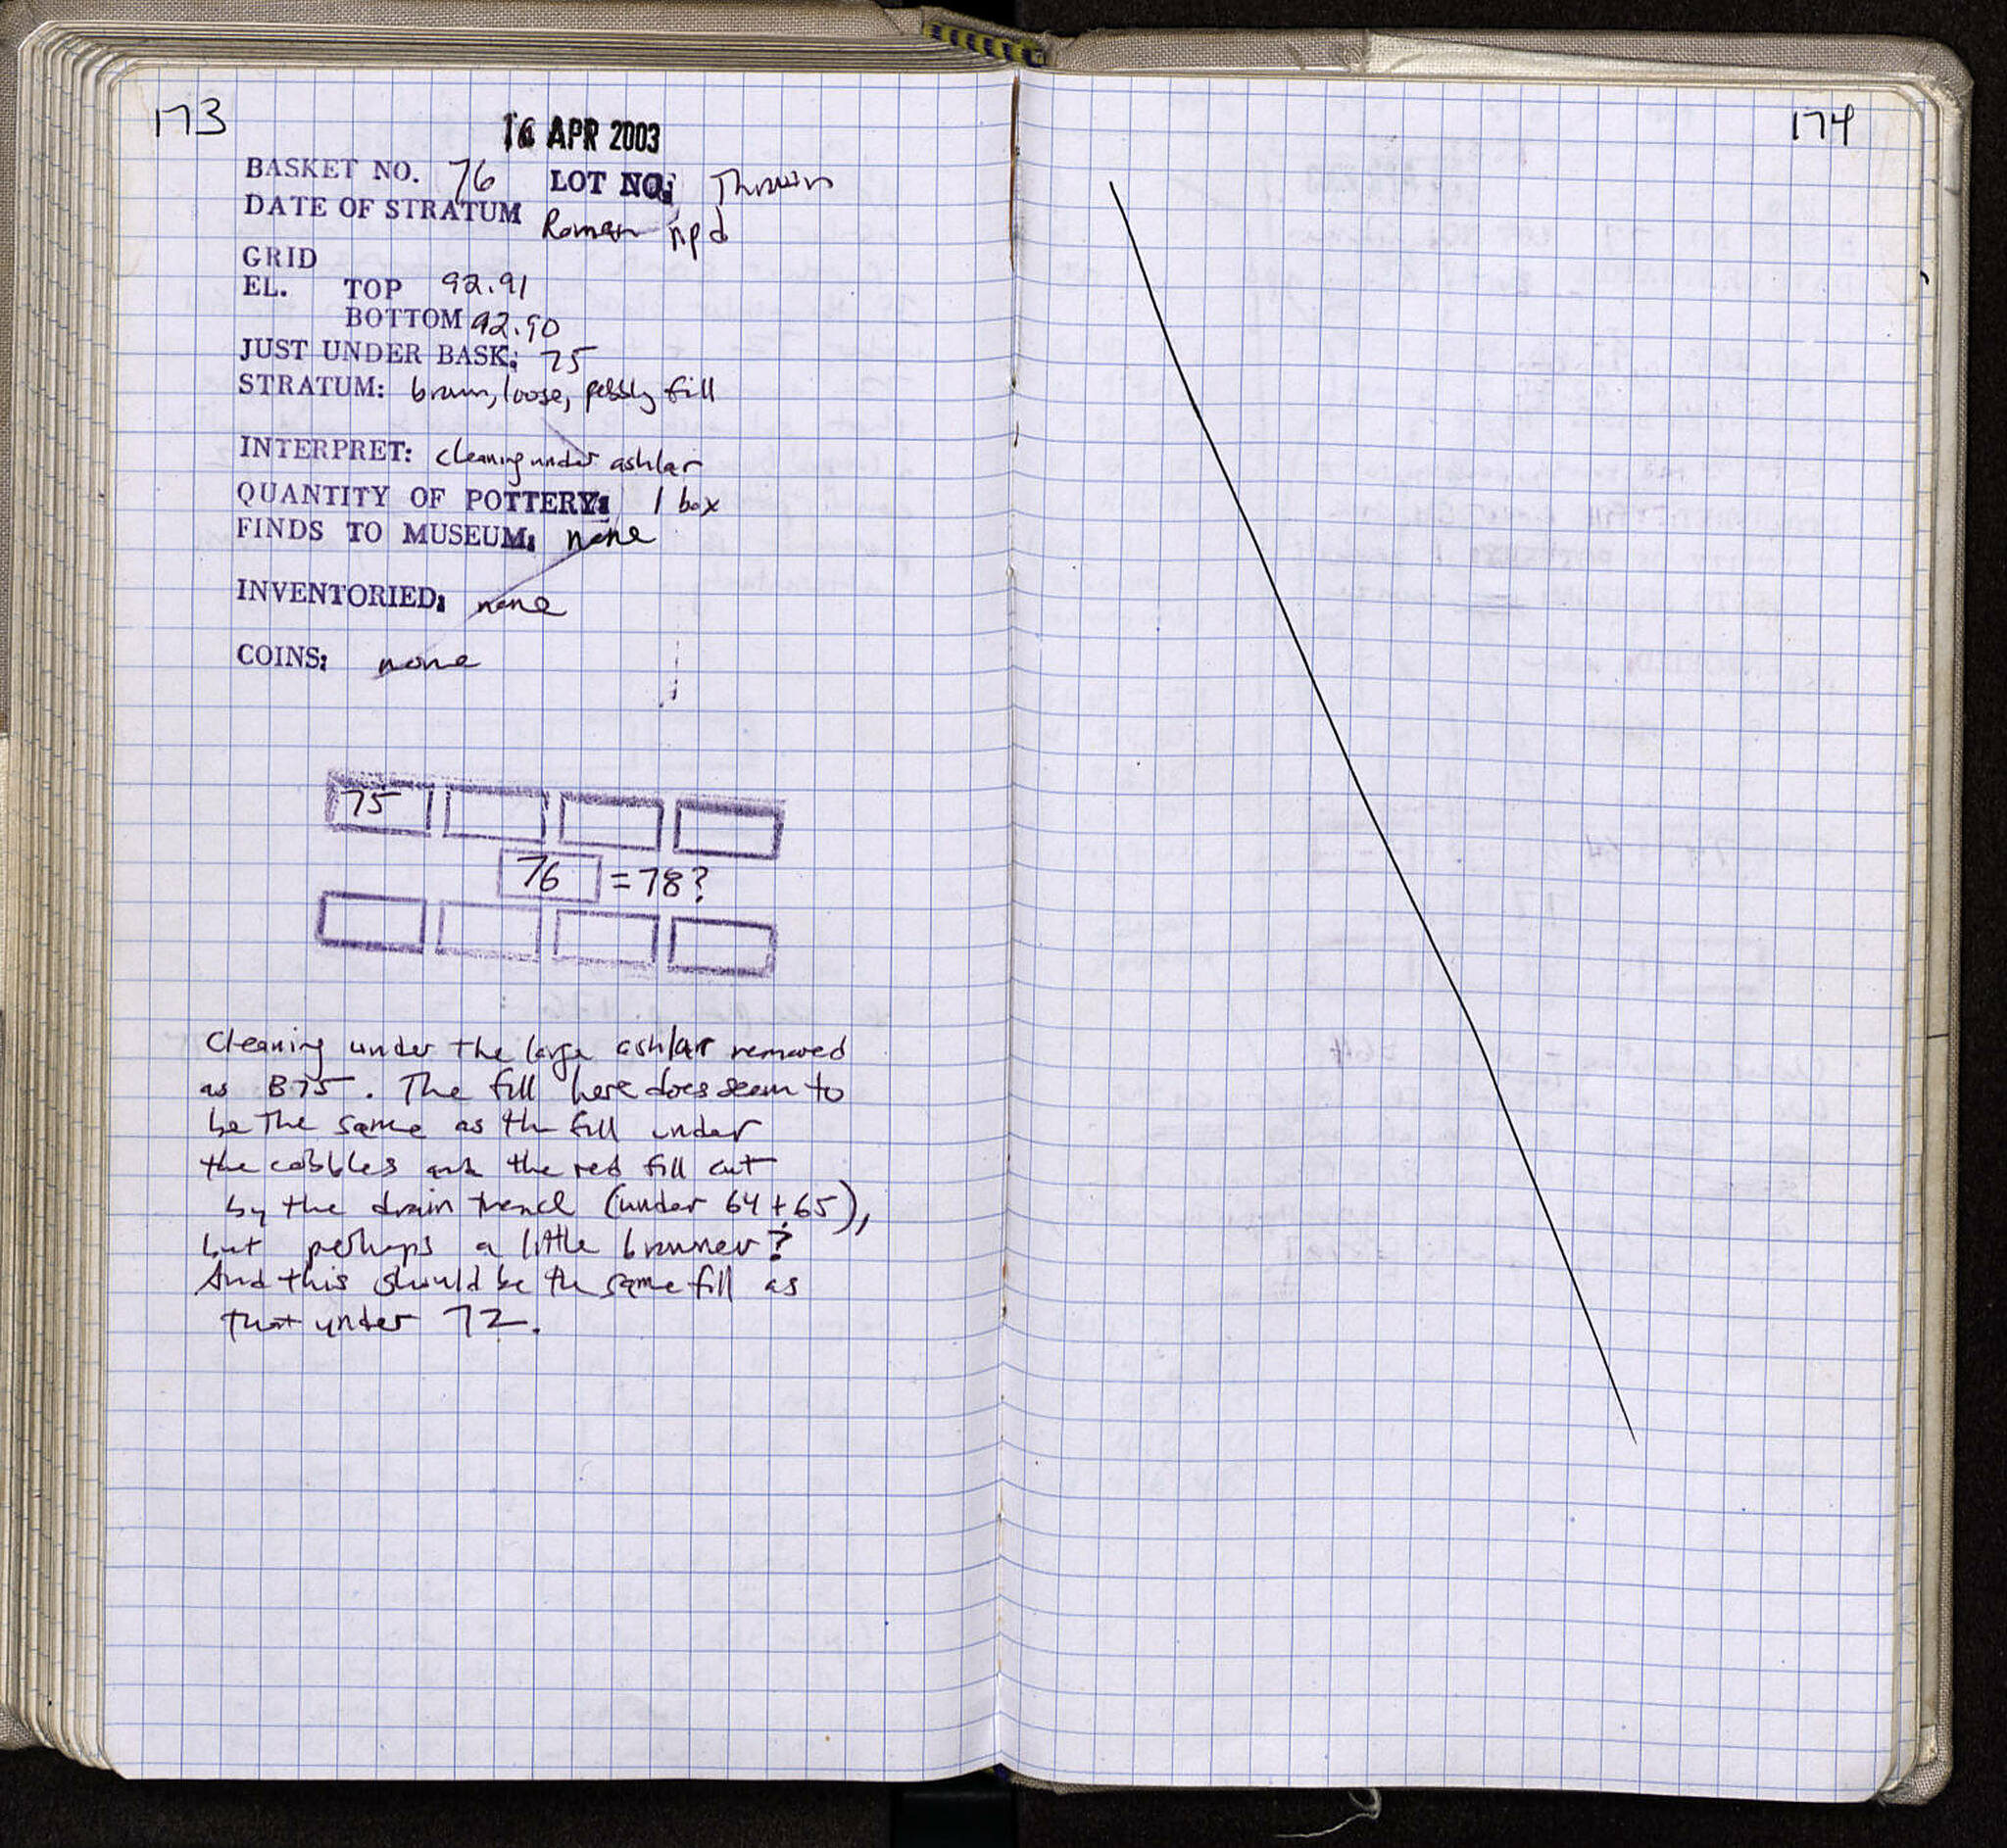 173
16 APR 2003
BASKET NO. 76 LOT NO: Thrown
DATE OF STRATUM Roman npd
GRID
EL. TOP 92.91
BOTTOM 92.90
JUST UNDER BASK: 75
STRATUM: brown, loose, pebbly fill
INTERPRET: cleaning under ashlar
QUANTITY OF POTTERY: 1 box
FINDS TO MUSEUM: none
INVENTORIED: none
COINS: none
75
76 = 78?
Cleaning under the large ashlar removed
as B75. The fill here does seem to
be the same as the fill under
the cobbles and the red fill cut
by the drain trench (under 64 + 65),
but perhaps a little browner?
And this should be the same fill as
that under 72.
174